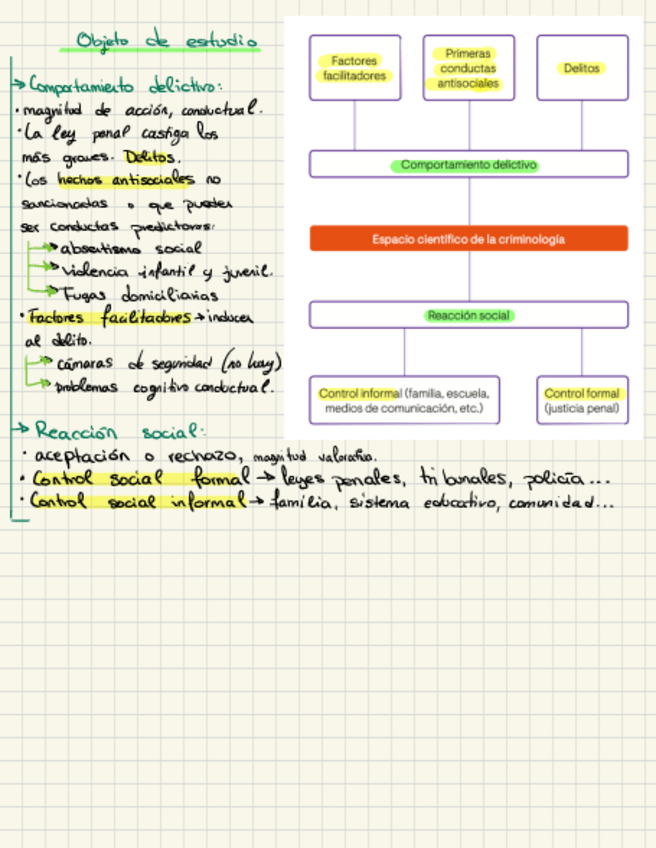 Objeto de estudio
Comportamiento delictivo:
• magnitud de acción, conductual.
• La ley penal castiga los
más graves. Delitos.
• Los hechos antisociales no
sancionados o que pueden
ser conductas predictoras:
absentismo social
violencia infantil y juvenil.
Fugas domiciliarias
• Factores facilitadores → inducen
al delito.
cámaras de seguridad (no hay)
problemas cognitivo conductual.
Reacción social:
• aceptación o rechazo, magnitud valorativa.
• Control social formal → leyes penales, tribunales, policía...
• Control social informal → familia, sistema educativo, comunidad...
Factores
facilitadores
Primeras
conductas
antisociales
Delitos
Comportamiento delictivo
Espacio científico de la criminología
Reacción social
Control informal (familia, escuela,
medios de comunicación, etc.)
Control formal
(justicia penal)